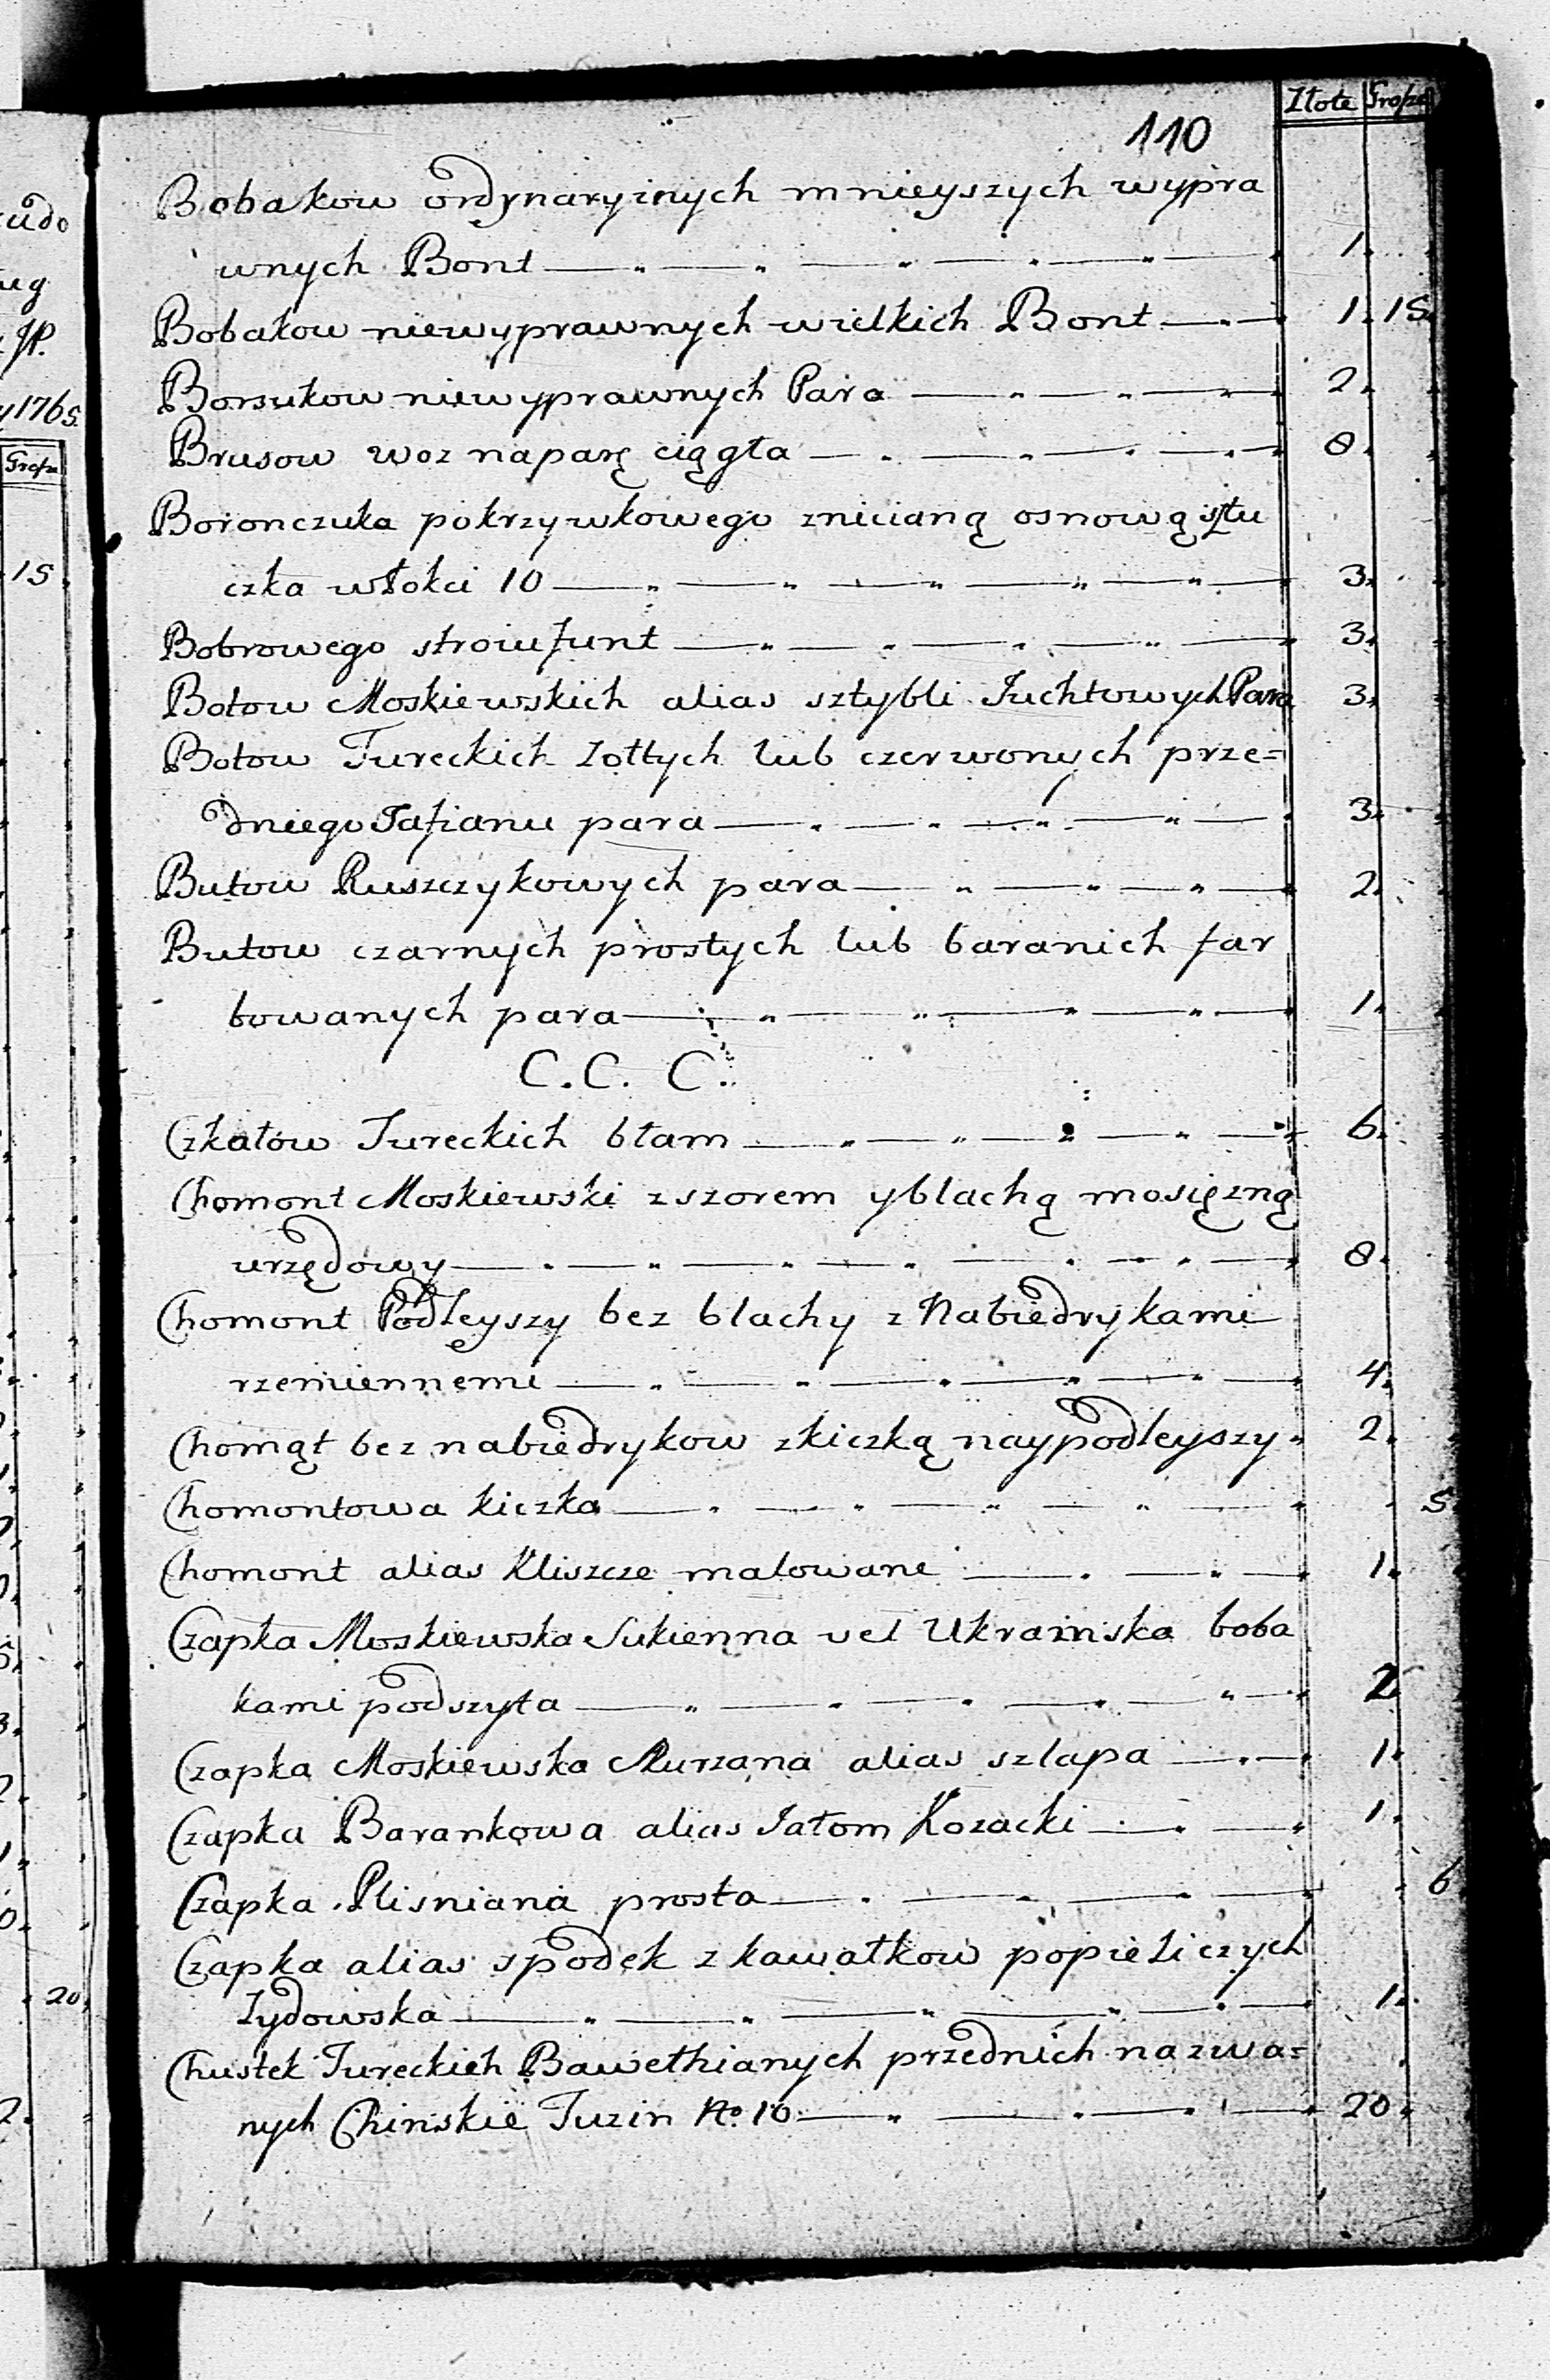 Złote Grosze
110
Bobakow ordynaryinych mnieyszych wypra
wnych Bont 1.
Bobakow niewyprawnych wielkich Bont 1. 15.
Borsukow niewyprawnych Para 2.
Brusow woz naparę ciągła 8.
Boronczuka pokrzywkowego znicianą osnową sztu
czka włokci 10 3.
Bobrowego stroiu funt 3.
Botow Moskiewskich alias sztybli Juchtowych Para 3.
Botow Tureckich Zołtych lub czerwonych prze=
dniego Safianu para 3.
Butow Ruszczykowych para 2.
Butow czarnych prostych lub baranich far
bowanych para 1.
C. C. C.
Czkałów Tureckich błam 6.
Chomont Moskiewski zszorem yblachą mosięzną
urzędowy 8.
Chomont Podleyszy bez blachy z Nabiedrykami
rzemiennemi 4.
Chomąt bez nabiedrykow zkiczką naypodleyszy 2.
Chomontowa kiczka 5.
Chomont alias Kliszcze malowane 1.
Czapka Moskiewska Sukienna vel Ukrainska boba
kami podszyta 2
Czapka Moskiewska Murzana alias szlapa 1.
Czapka Barankowa alias Jałom Kozacki 1.
Czapka Plisniana prosta 6
Czapka alias spodek z kawałkow popieliczych
Zydowska 1.
Chustek Tureckich Bawełnianych przednich nazwa=
nych Chinskie Tuzin No. 10 20.
udo
ug
JP.
1765.
Grosze
15
20.